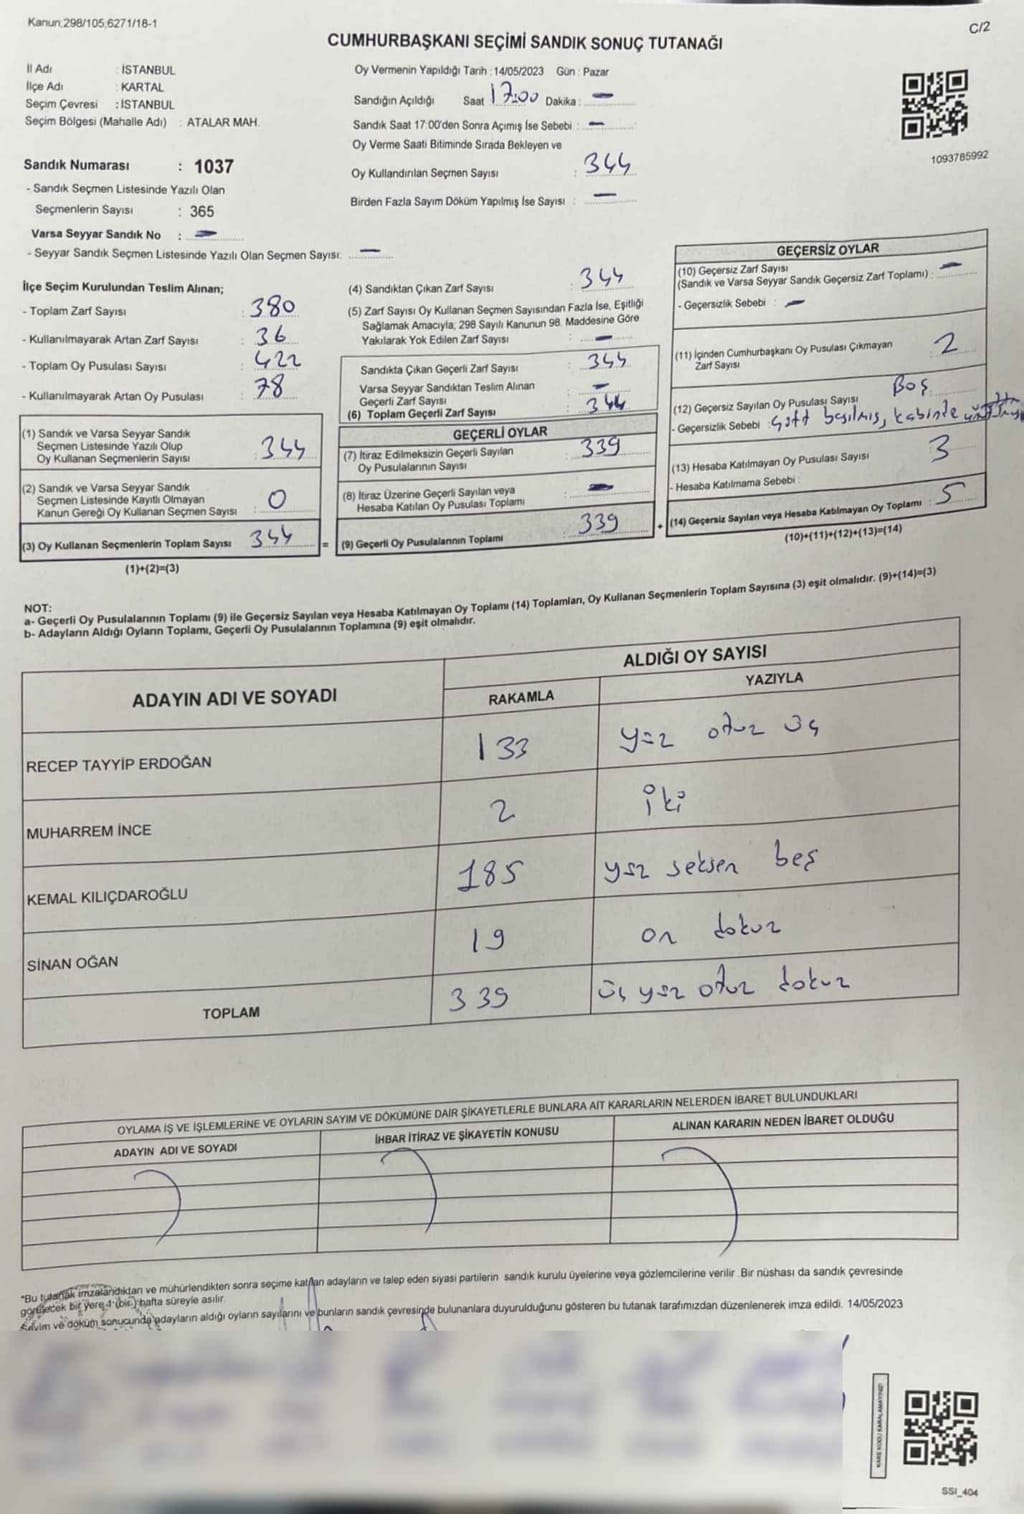 Kanun;298/105;6271/18-1
C/2
CUMHURBAŞKANI SEÇİMİ SANDIK SONUÇ TUTANAĞI
İl Adı : İSTANBUL
İlçe Adı : KARTAL
Seçim Çevresi : İSTANBUL
Seçim Bölgesi (Mahalle Adı) : ATALAR MAH.
Sandık Numarası : 1037
- Sandık Seçmen Listesinde Yazılı Olan
Seçmenlerin Sayısı : 365
Varsa Seyyar Sandık No : -
- Seyyar Sandık Seçmen Listesinde Yazılı Olan Seçmen Sayısı: -
Oy Vermenin Yapıldığı Tarih : 14/05/2023 Gün : Pazar
Sandığın Açıldığı Saat 17:00 Dakika : -
Sandık Saat 17:00'den Sonra Açımış İse Sebebi : -
Oy Verme Saati Bitiminde Sırada Bekleyen ve
Oy Kullandırılan Seçmen Sayısı : 344
Birden Fazla Sayım Döküm Yapılmış İse Sayısı : -
1093785992
İlçe Seçim Kurulundan Teslim Alınan;
- Toplam Zarf Sayısı : 380
- Kullanılmayarak Artan Zarf Sayısı : 36
- Toplam Oy Pusulası Sayısı : 422
- Kullanılmayarak Artan Oy Pusulası : 78
(1) Sandık ve Varsa Seyyar Sandık
Seçmen Listesinde Yazılı Olup
Oy Kullanan Seçmenlerin Sayısı : 344
(2) Sandık ve Varsa Seyyar Sandık
Seçmen Listesinde Kayıtlı Olmayan
Kanun Gereği Oy Kullanan Seçmen Sayısı : 0
(3) Oy Kullanan Seçmenlerin Toplam Sayısı : 344 =
(1)+(2)=(3)
(4) Sandıktan Çıkan Zarf Sayısı : 344
(5) Zarf Sayısı Oy Kullanan Seçmen Sayısından Fazla İse, Eşitliği
Sağlamak Amacıyla; 298 Sayılı Kanunun 98. Maddesine Göre
Yakılarak Yok Edilen Zarf Sayısı : -
Sandıkta Çıkan Geçerli Zarf Sayısı : 344
Varsa Seyyar Sandıktan Teslim Alınan
Geçerli Zarf Sayısı : -
(6) Toplam Geçerli Zarf Sayısı : 344
GEÇERLİ OYLAR
(7) İtiraz Edilmeksizin Geçerli Sayılan
Oy Pusulalarının Sayısı : 339
(8) İtiraz Üzerine Geçerli Sayılan veya
Hesaba Katılan Oy Pusulası Toplamı : -
(9) Geçerli Oy Pusulalarının Toplamı : 339 +
GEÇERSİZ OYLAR
(10) Geçersiz Zarf Sayısı
(Sandık ve Varsa Seyyar Sandık Geçersiz Zarf Toplamı) : -
- Geçersizlik Sebebi : -
(11) İçinden Cumhurbaşkanı Oy Pusulası Çıkmayan
Zarf Sayısı : 2
(12) Geçersiz Sayılan Oy Pusulası Sayısı : Boş
- Geçersizlik Sebebi : Çift basılmış, kabinde
(13) Hesaba Katılmayan Oy Pusulası Sayısı : 3
- Hesaba Katılmama Sebebi :
(14) Geçersiz Sayılan veya Hesaba Katılmayan Oy Toplamı : 5
(10)+(11)+(12)+(13)=(14)
NOT:
a- Geçerli Oy Pusulalarının Toplamı (9) ile Geçersiz Sayılan veya Hesaba Katılmayan Oy Toplamı (14) Toplamları, Oy Kullanan Seçmenlerin Toplam Sayısına (3) eşit olmalıdır. (9)+(14)=(3)
b- Adayların Aldığı Oyların Toplamı, Geçerli Oy Pusulalarının Toplamına (9) eşit olmalıdır.
ADAYIN ADI VE SOYADI
ALDIĞI OY SAYISI
RAKAMLA YAZIYLA
RECEP TAYYİP ERDOĞAN 133 yüz otuz üç
MUHARREM İNCE 2 iki
KEMAL KILIÇDAROĞLU 185 yüz seksen beş
SİNAN OĞAN 19 on dokuz
TOPLAM 339 üç yüz otuz dokuz
OYLAMA İŞ VE İŞLEMLERİNE VE OYLARIN SAYIM VE DÖKÜMÜNE DAİR ŞİKAYETLERLE BUNLARA AİT KARARLARIN NELERDEN İBARET BULUNDUKLARI
ADAYIN ADI VE SOYADI İHBAR İTİRAZ VE ŞİKAYETİN KONUSU ALINAN KARARIN NEDEN İBARET OLDUĞU
"Bu tutanak imzalandıktan ve mühürlendikten sonra seçime katılan adayların ve talep eden siyasi partilerin sandık kurulu üyelerine veya gözlemcilerine verilir. Bir nüshası da sandık çevresinde
görülecek bir yere 1 (bir) hafta süreyle asılır.
Sayım ve döküm sonucunda adayların aldığı oyların sayılarını ve bunların sandık çevresinde bulunanlara duyurulduğunu gösteren bu tutanak tarafımızdan düzenlenerek imza edildi. 14/05/2023
KARE KODU KARALAMAYINIZ!
SSI_404